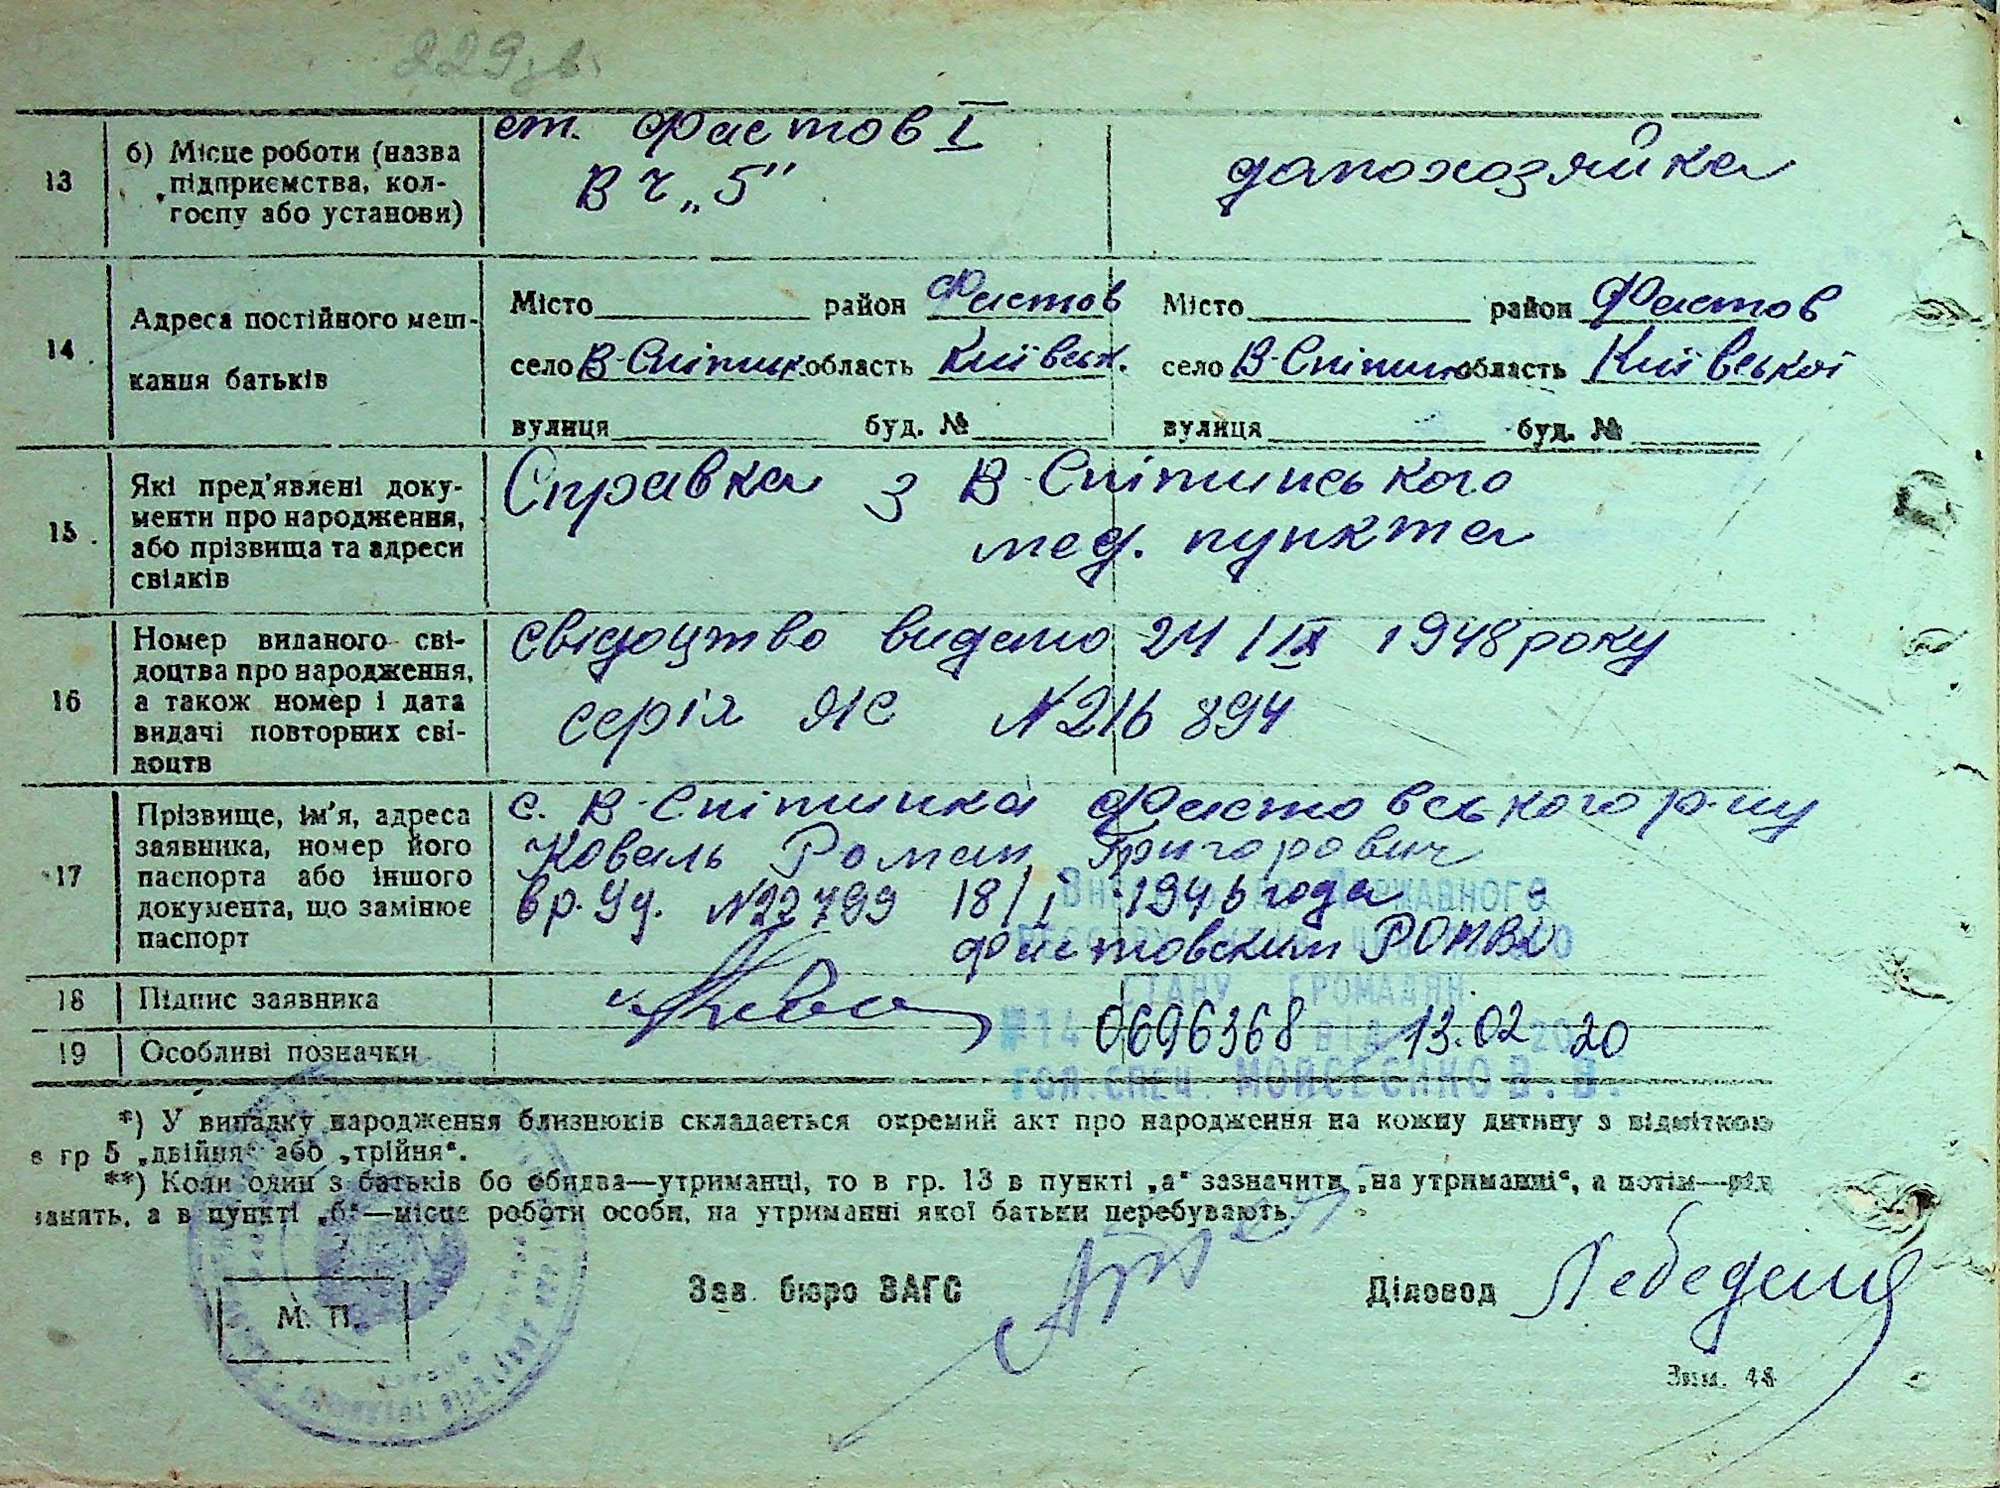 229 зв.
13
б) Місце роботи (назва підприємства, колгоспу або установи)
ст. Фастов I
ВЧ „5"
домохозяйка
14
Адреса постійного мешкання батьків
Місто район Фастов
село В-Снітинк. область Київськ.
вулиця буд. №
Місто район Фастов
село В-Снітинк область Київської
вулиця буд. №
15
Які пред'явлені документи про народження, або прізвища та адреси свідків
Справка з В-Снітинського
мед. пункта
16
Номер виданого свідоцтва про народження, а також номер і дата видачі повторних свідоцтв
свідоцтво видано 24/IX 1948 року
серія ЯС №216 894
17
Прізвище, ім'я, адреса заявника, номер його паспорта або іншого документа, що замінює паспорт
с. В-Снітинка Фастовського р-ну
Коваль Роман Григорович
вр. уд. №22799 18/I 1946 года
Фастовским РОМВД
Державного
стану громадян
18
Підпис заявника
19
Особливі позначки
№14 0696368 від 13.02 2020
гол. спец. Мойсеєнко В. В.
*) У випадку народження близнюків складається окремий акт про народження на кожну дитину з відміткою
в гр 5 „двійня“ або „трійня“.
**) Коли один з батьків бо обидва—утриманці, то в гр. 13 в пункті „а“ зазначити „на утриманні“, а потім—рід
занять, а в пункті „б“—місце роботи особи, на утриманні якої батьки перебувають.
М. П.
Зав. бюро ЗАГС
Діловод
Зам. 48